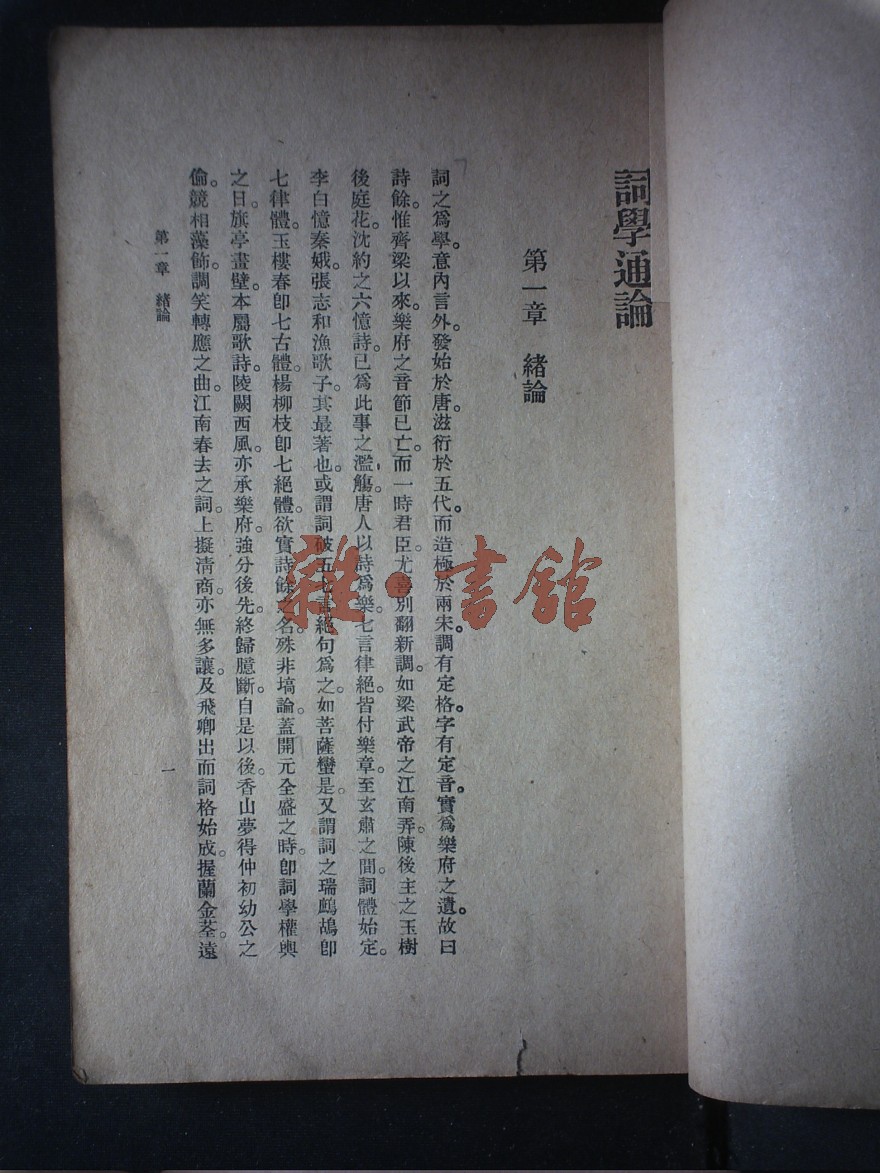 詞學通論
第一章 緒論
詞之爲學。意內言外。發始於唐。滋衍於五代。而造極於兩宋。調有定格。字有定音。實爲樂府之遺。故曰
詩餘。惟齊梁以來。樂府之音節已亡。而一時君臣。尤喜別翻新調。如梁武帝之江南弄。陳後主之玉樹
後庭花。沈約之六憶詩。已爲此事之濫觴。唐人以詩爲樂。七言律絕。皆付樂章。至玄肅之間。詞體始定。
李白憶秦娥。張志和漁歌子。其最著也。或謂詞破五七言絕句爲之。如菩薩蠻是。又謂詞之瑞鷓鴣卽
七律體。玉樓春卽七古體。楊柳枝卽七絕體。欲實詩餘之名。殊非塙論。蓋開元全盛之時。卽詞學權輿
之日。旗亭畫壁。本屬歌詩。陵闕西風。亦承樂府。強分後先。終歸臆斷。自是以後。香山夢得仲初幼公之
倫。競相藻飾。調笑轉應之曲。江南春去之詞。上擬淸商。亦無多讓。及飛卿出而詞格始成。握蘭金荃。遠
第一章 緒論
一
雜·書館